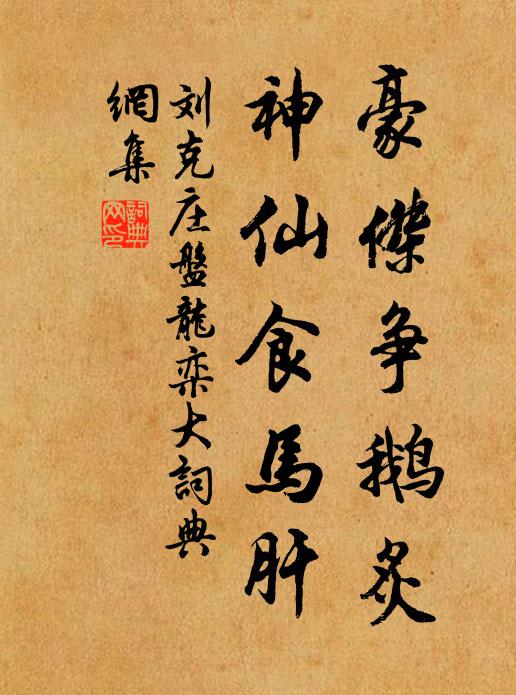 豪傑争鹅炙
神仙食馬肝
刘克庄盤龍栾大詞典
網集
詞典
网印